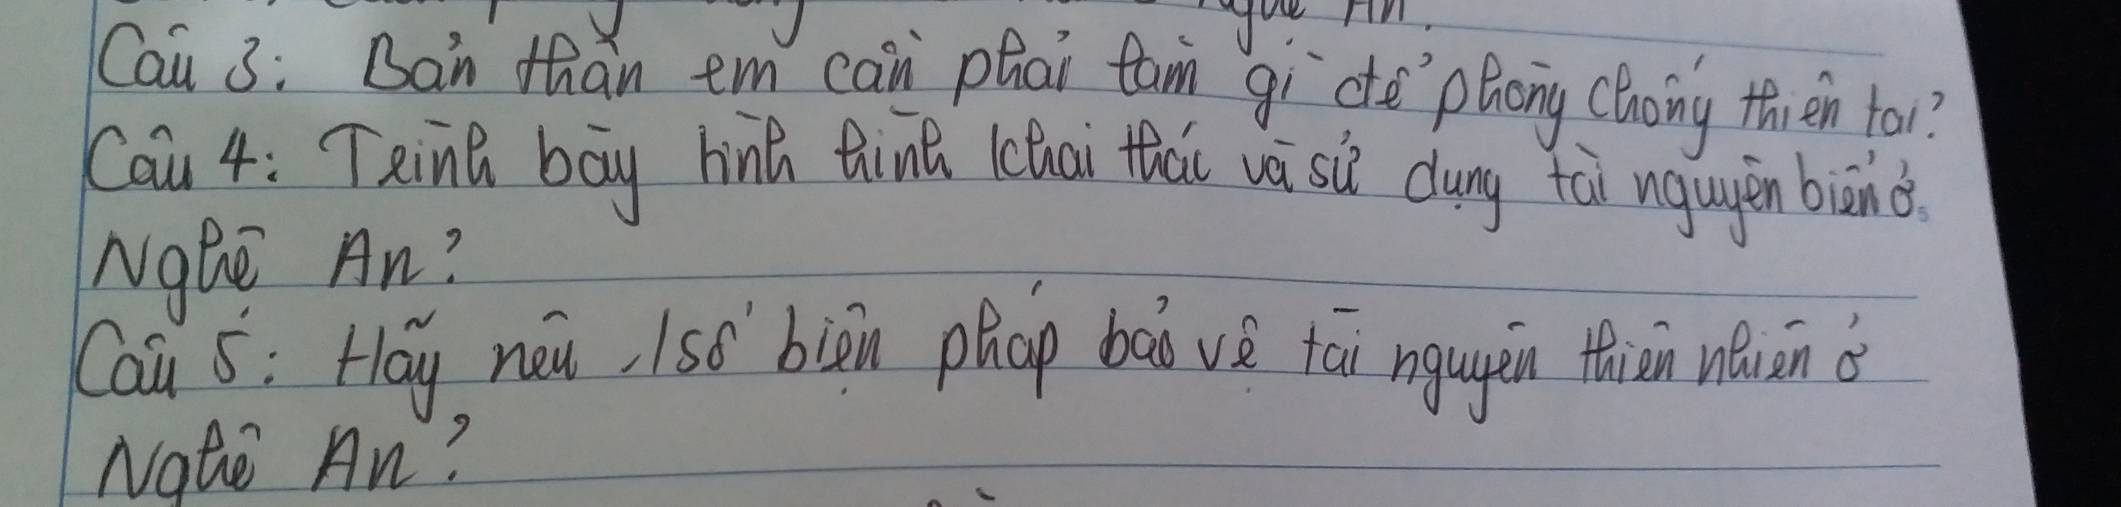 Nghệ An.
Câu 3: Bản thân em cần phải làm gì để phòng chống thiên tai?
Câu 4: Trình bày hình hình khai thác và sử dụng tài nguyên biển ở
Nghệ An?
Câu 5: Hãy nêu 1 số biện pháp bảo vệ tài nguyên thiên nhiên ở
Nghệ An?